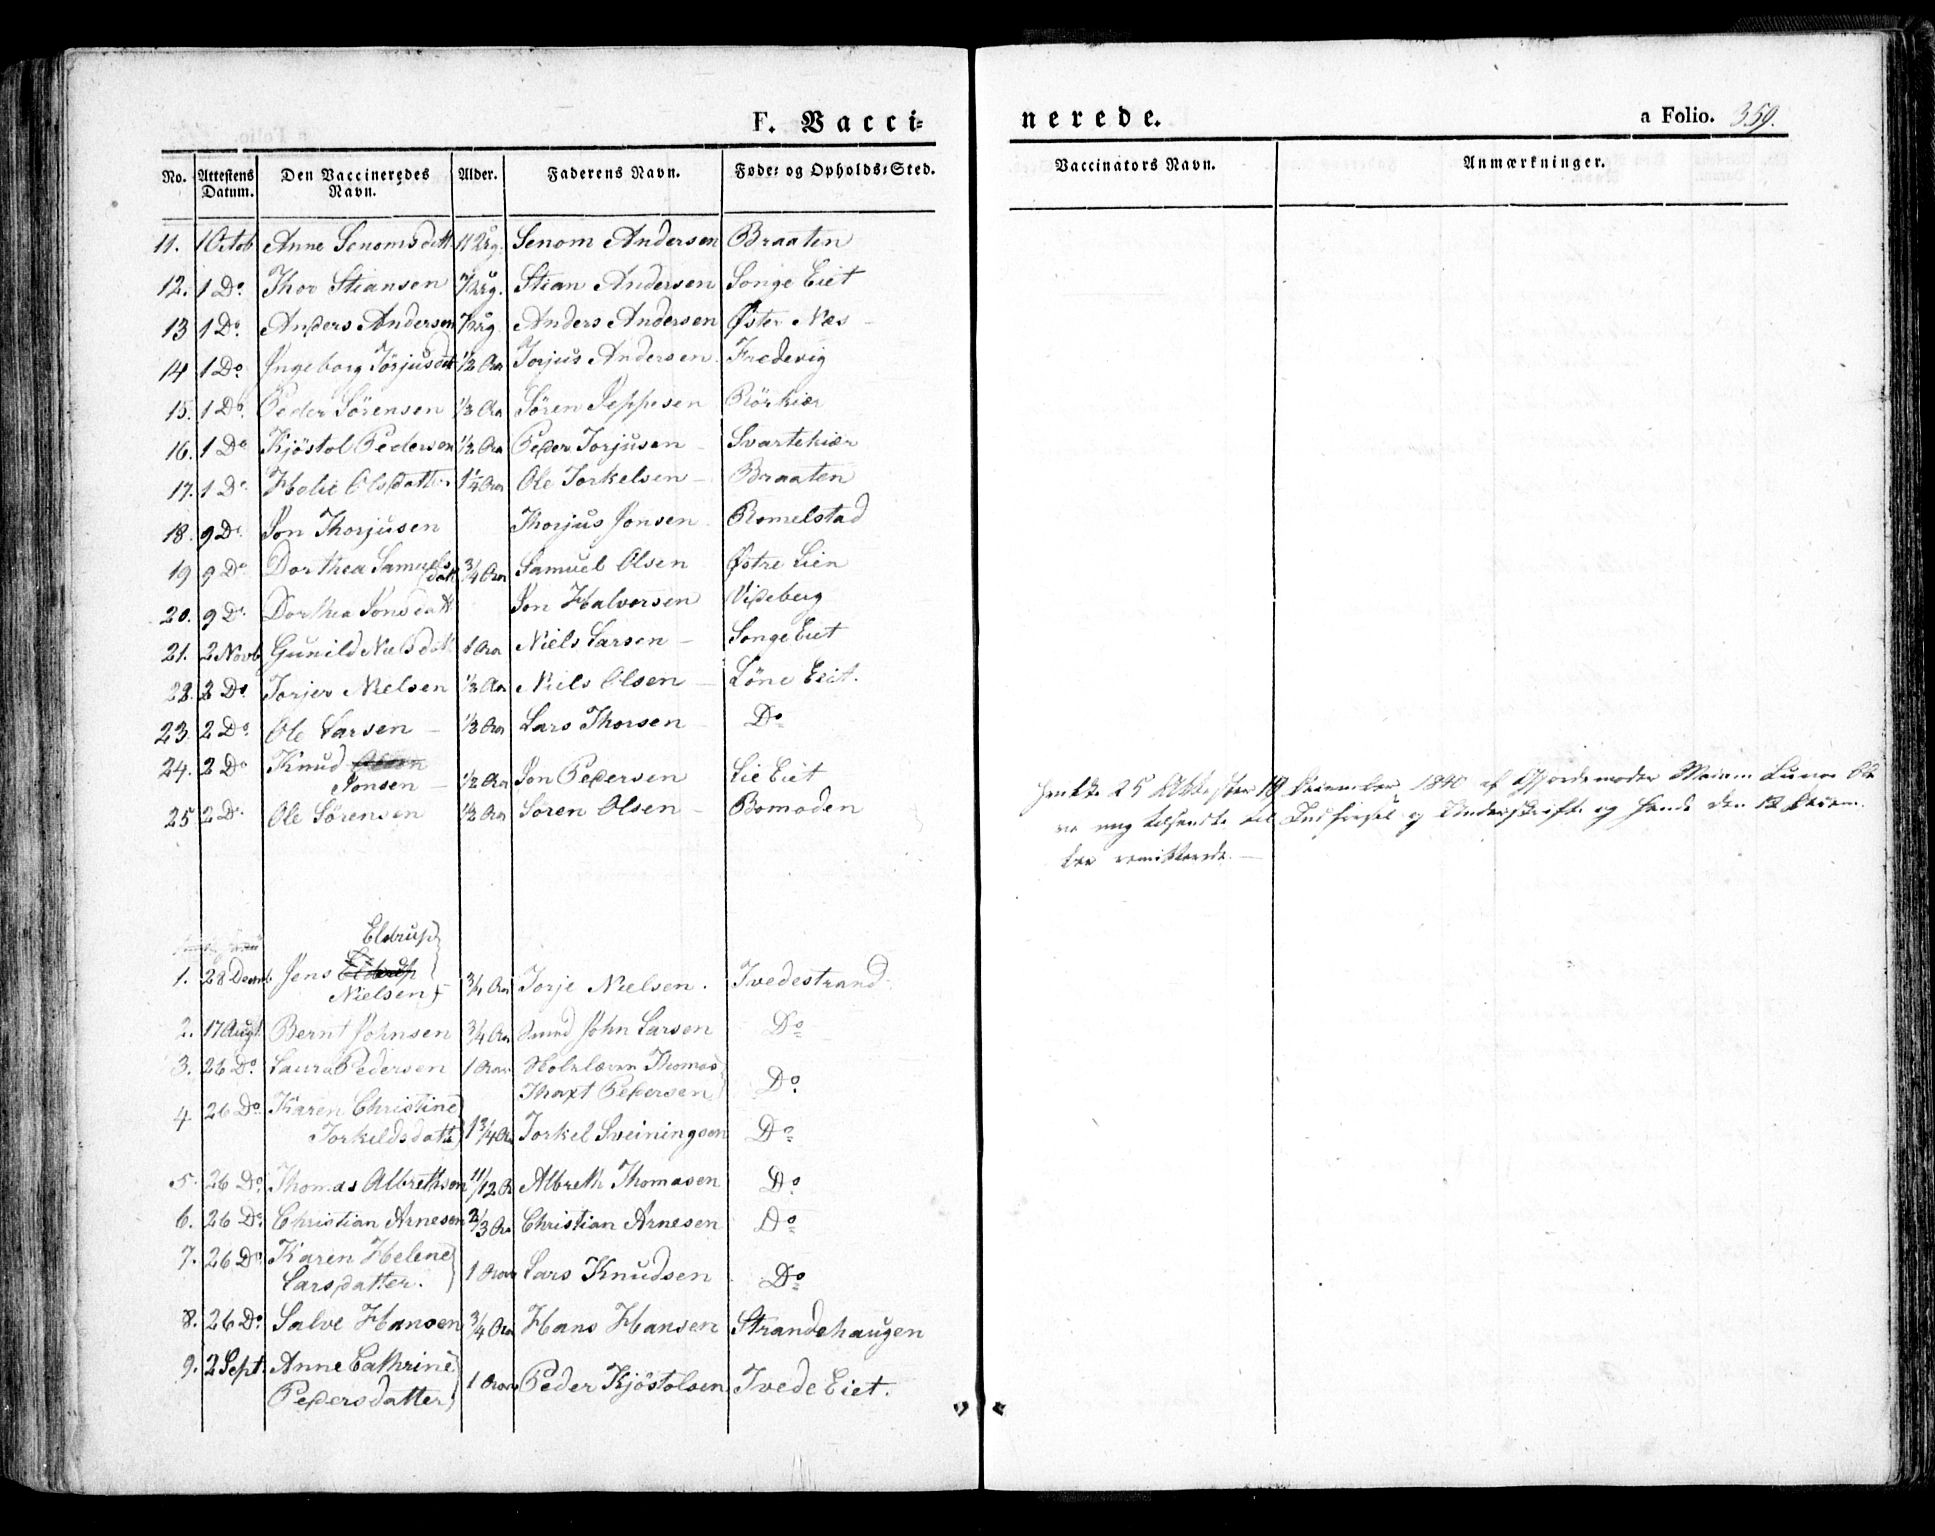 F. Vacci=
nerede.
a Folio. 359.
No. Attestens Datum. Den Vaccineredes Navn. Alder. Faderens Navn. Føde= og Opholds=Sted.
Vaccinators Navn. Anmærkninger.
11. 1 Octob Anne Senomsdatt Senom Andersen Braaten
12. 1 Do Thor Stiansen Stian Andersen Songe Eiet
13 1 Do Anders Andersen Anders Andersen Øster Næs
14 1 Do Ingeborg Torjusdatt 1/2 Aar Torjus Andersen Fredevig
15. 1 Do Peder Sörensen 1/3 Aar Sören Jeppesen Rörkiær
16. 1 Do Kjöstol Pedersen 1/2 Aar Peder Torjusen Svartekiær
17. 1 Do Helie Olsdatter 1 1/4 Aar Ole Torkelsen Braaten
18. 9 Do Jon Thorjusen Thorjus Jonsen Romelstad
19 9 Do Dorthea Samuels
datt 3/4 Aar Samuel Olsen Østre Lien
20. 9 Do Dorthea Jonsdatt Jon Halvorsen Visseberg
21. 2 Novb Gunild Nielsdatt 1 Aar Niels Larsen Songe Eiet
22. 2 Do Torjer Nielsen 1/2 Aar Niels Olsen Löne Eiet.
23. 2 Do Ole Larsen 1/3 Aar Lars Thorsen Do
24. 2 Do Knud Olsen
Jonsen 1/2 Aar Jon Pedersen Lie Eiet
25 2 Do Ole Sörensen 1/2 Aar Sören Olsen Bomoden
25 Attester 1840 af Gjordemoder
mig tilsendte til og Underskrift og den 12
remitterede.
Eldrup
1. 28 Decmb Jens
Nielsen 3/4 Aar Torje Nielsen. Tvedestrand
2. 17 Augt. Bernt Johnsen 3/4 Aar Smed John Larsen Do
3. 26 Do Laura Pedersen 1 Aar Thomas
Thaxt Pedersen Do
4 26 Do Karen Christine
Torkildsdatter 1 3/4 Aar Torkel Sveiningsen Do
5. 26 Do Thomas Albrethsen 11/12 A Albreth Thomasen Do
6. 26 Do Christian Arnesen 2/3 Aar Christian Arnesen Do
7. 26 Do Karen Helene
Larsdatter. 1 Aar Lars Knudsen Do
8. 26 Do Salve Hansen 3/4 Aar Hans Hansen Strandehaugen
9. 2 Sept. Anne Cathrine
Pedersdatter 1 Aar Peder Kjöstolsen Tvede Eiet.